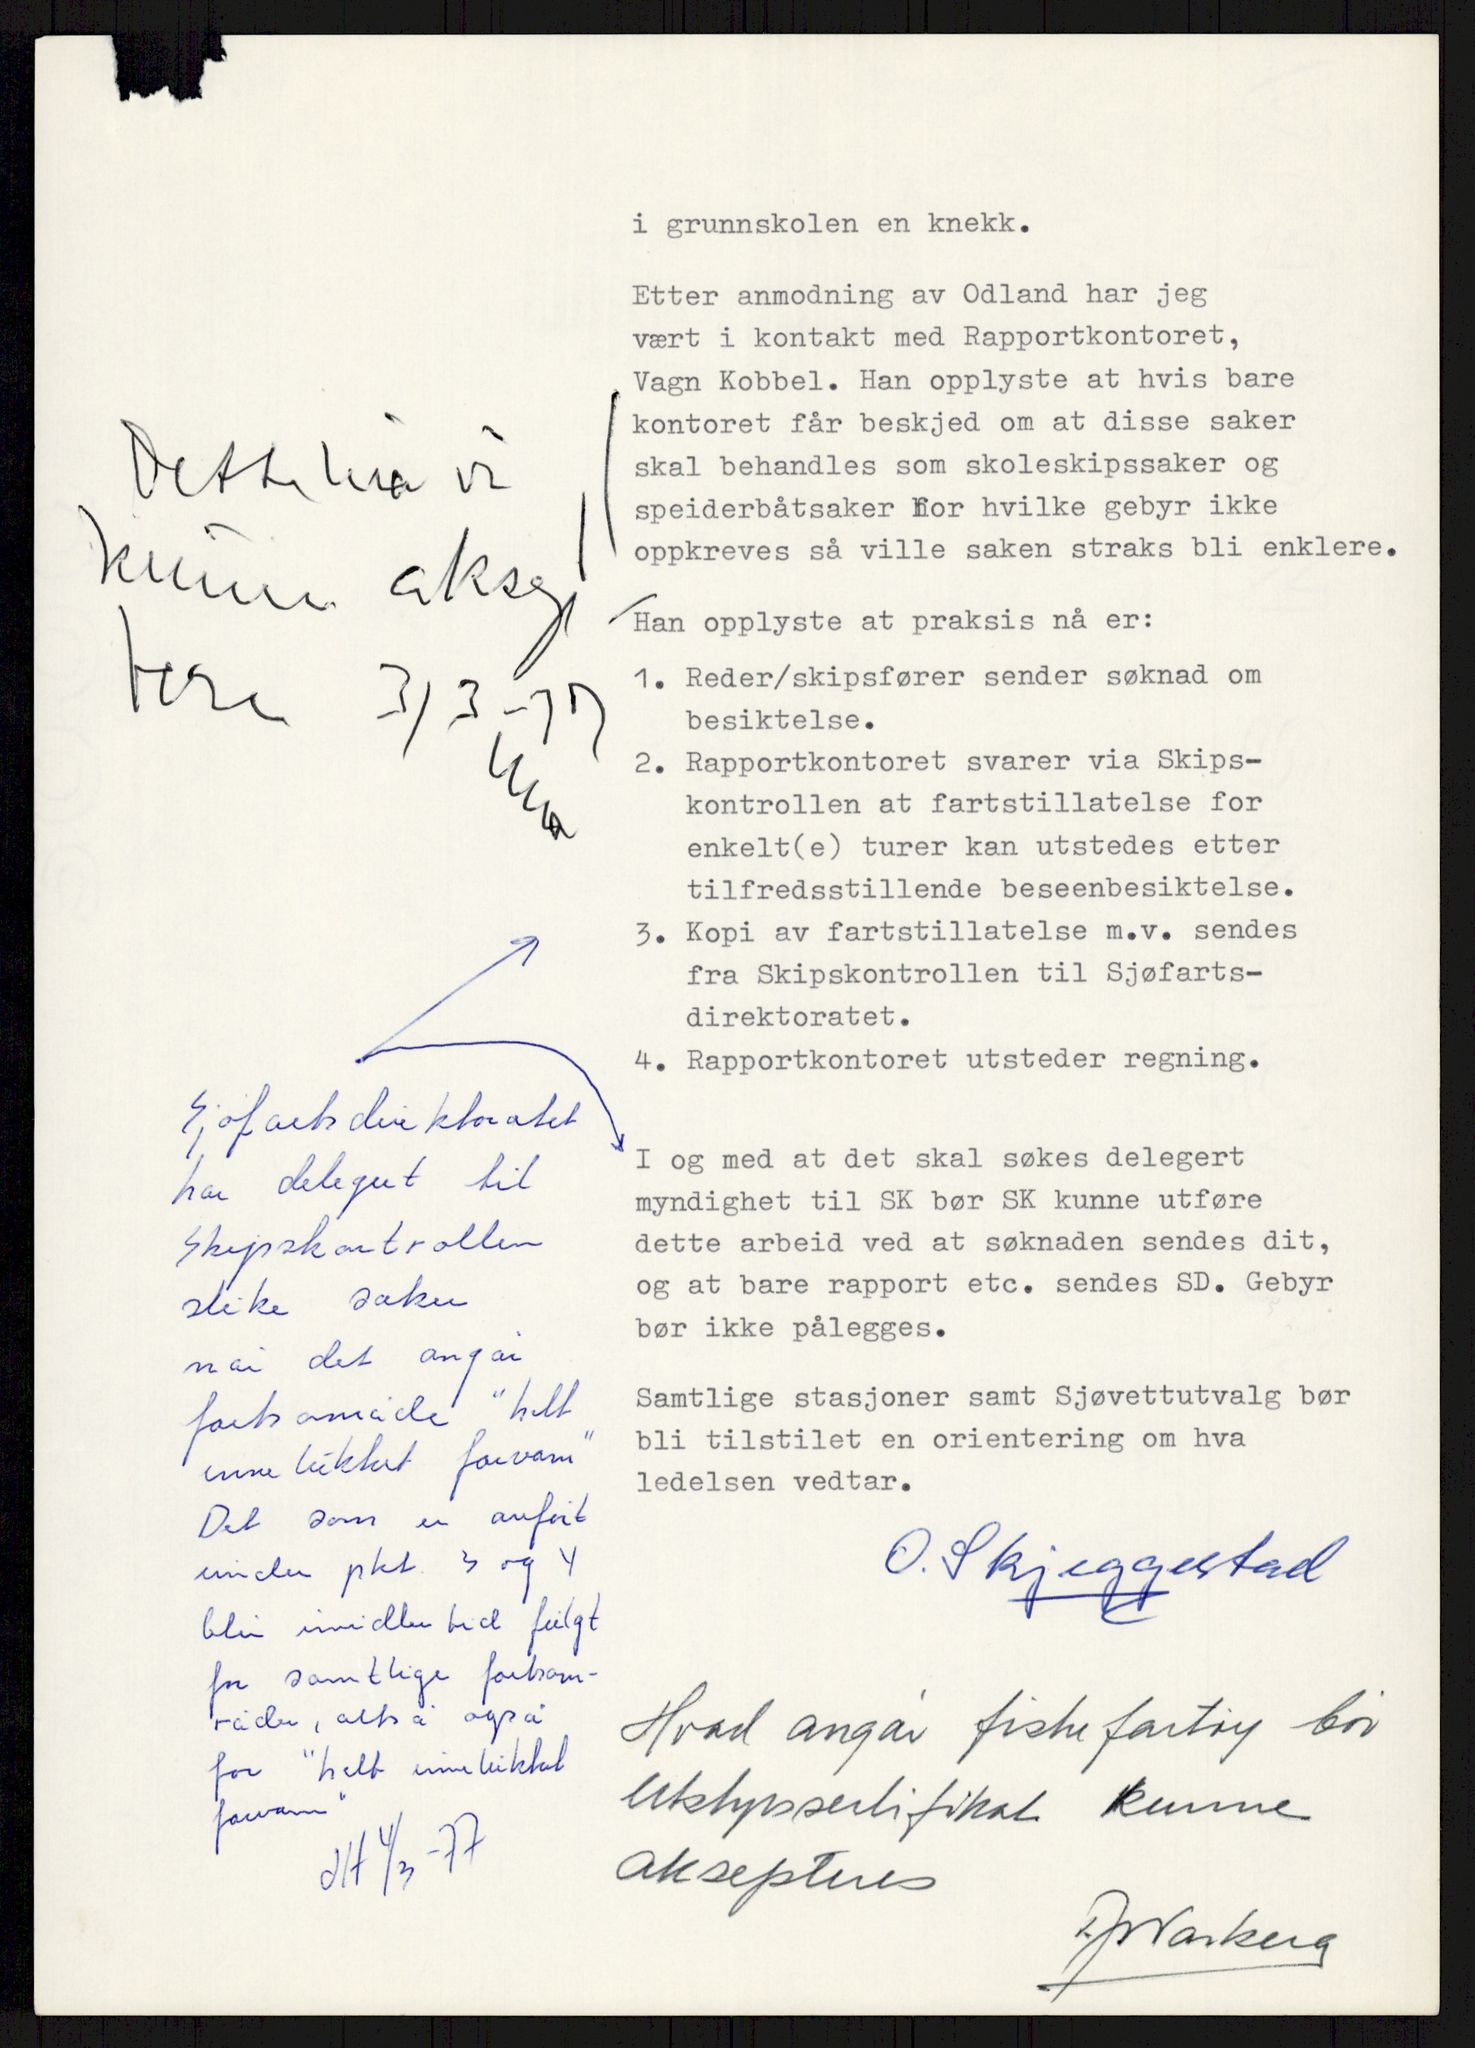 i grunnskolen en knekk.
Etter anmodning av Odland har jeg
vært i kontakt med Rapportkontoret,
Vagn Kobbel. Han opplyste at hvis bare
kontoret får beskjed om at disse saker
skal behandles som skoleskipssaker og
speiderbåtsaker for hvilke gebyr ikke
oppkreves så ville saken straks bli enklere.
Dette må vi
kunne aksep
tere 3/3-77
Han opplyste at praksis nå er:
1. Reder/skipsfører sender søknad om
besiktelse.
2. Rapportkontoret svarer via Skips-
kontrollen at fartstillatelse for
enkelt(e) turer kan utstedes etter
tilfredsstillende beseenbesiktelse.
3. Kopi av fartstillatelse m.v. sendes
fra Skipskontrollen til Sjøfarts-
direktoratet.
4. Rapportkontoret utsteder regning.
I og med at det skal søkes delegert
myndighet til SK bør SK kunne utføre
dette arbeid ved at søknaden sendes dit,
og at bare rapport etc. sendes SD. Gebyr
bør ikke pålegges.
Samtlige stasjoner samt Sjøvettutvalg bør
bli tilstilet en orientering om hva
ledelsen vedtar.
O. Skjeggestad
Sjøfartsdirektoratet
har delegert til
Skipskontrollen
slike saker
når det angår
fartsområde "helt
innelukket farvann"
Det som er anført
under pkt. 3 og 4
blir imidlertid fulgt
for samtlige fartsom-
råder, altså også
for "helt innelukket
farvann"
4/3-77
Hvad angår fiskefartøy bør
Utstyrssertifikat kunne
aksepteres